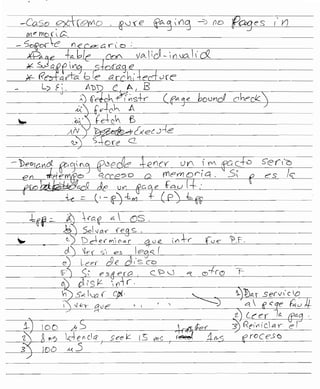 -Caso extremo. pure paging → no pages in
memoria
-Soporte necesario:
*Page table con valid-invalid
* Swapping storage
* Restartable architecture
↳ Ej. ADD C, A, B
i) Fetch instr (page bound check)
ii) fetch A
iii) fetch B
iv) Execute
v) Store C
-Demand paging puede tener un impacto serio
en tiempo acceso a memoria. Si p es la
prob de un page fault:
te = (1-p)tm + (p)tpf
tpf = a) trap al OS.
b) Salvar regs.
c) Determinar que intr fue P.F.
d) Ver si es legal
e) Leer de disco
F) Si espera, CPU a otro
g) disk intr.
h) salvar
i) ver que ....
1) Dar servicio
al page fault
2) Leer la pag.
3) Reiniciar el
proceso
1) 100 µS
2) 8ms latencia, seek 15 ms, transfer 1ms
3) 100 µS